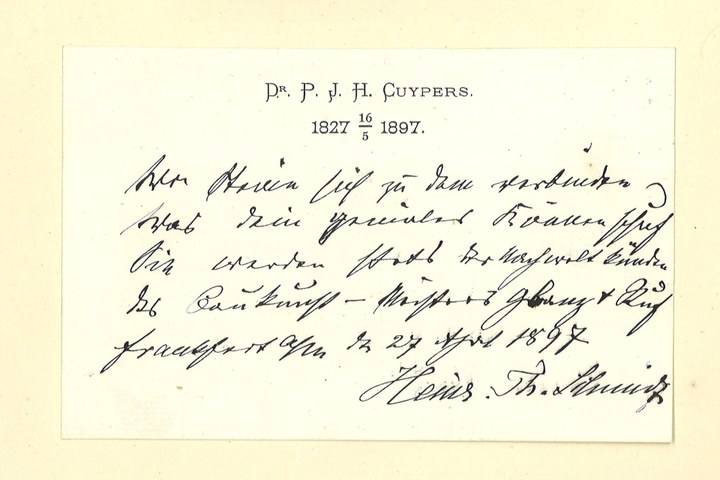 Dr. P. J. H. Cuypers.
1827 16/5 1897.
Wo Steine sich zu dem verbinden
Was dein geniales Können schuf
Sie werden stets der Nachwelt künden
des Baukunst-Meisters Glanz & Ruf
Frankfurt a/m d 27 April 1897
Heinr. Th. Schmidt